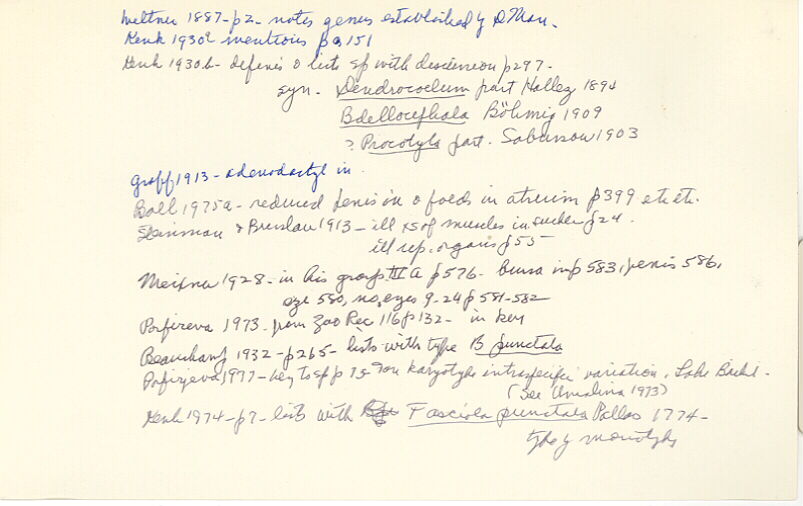 Weltner 1887-p2- notes genus established by DMan.
Kenk 1930a mentions pg 151
Kenk 1930b- defines & lists sp with discussion p297-
syn. Dendrocoelum part Hallez 1894
Bdellocephala Böhmig 1909
? Procotyla part. Sabussow 1903
Graff 1913- adenodactyl in
Ball 1975a- reduced penis in & folds in atrium p399 etc etc.
Steinman & Bresslau 1913- ill xs of muscles in sucker p24.
ill rep. organs p55
Meixner 1928- in his group III A p576- bursa in p583, penis 586,
size 580, no. eyes 9-24 p581-582
Porfireva 1973- from Zoo Rec 116 p132- in key
Beauchamp 1932-p265- lists with type B punctata
Porfirjeva 1977- key to sp p 75- on karyotype intraspecific variation, Lake Baikal.
(See 1973)
Kenk 1974-p7- lists with Fasciola punctata Pallas 1774-
type by monotypy